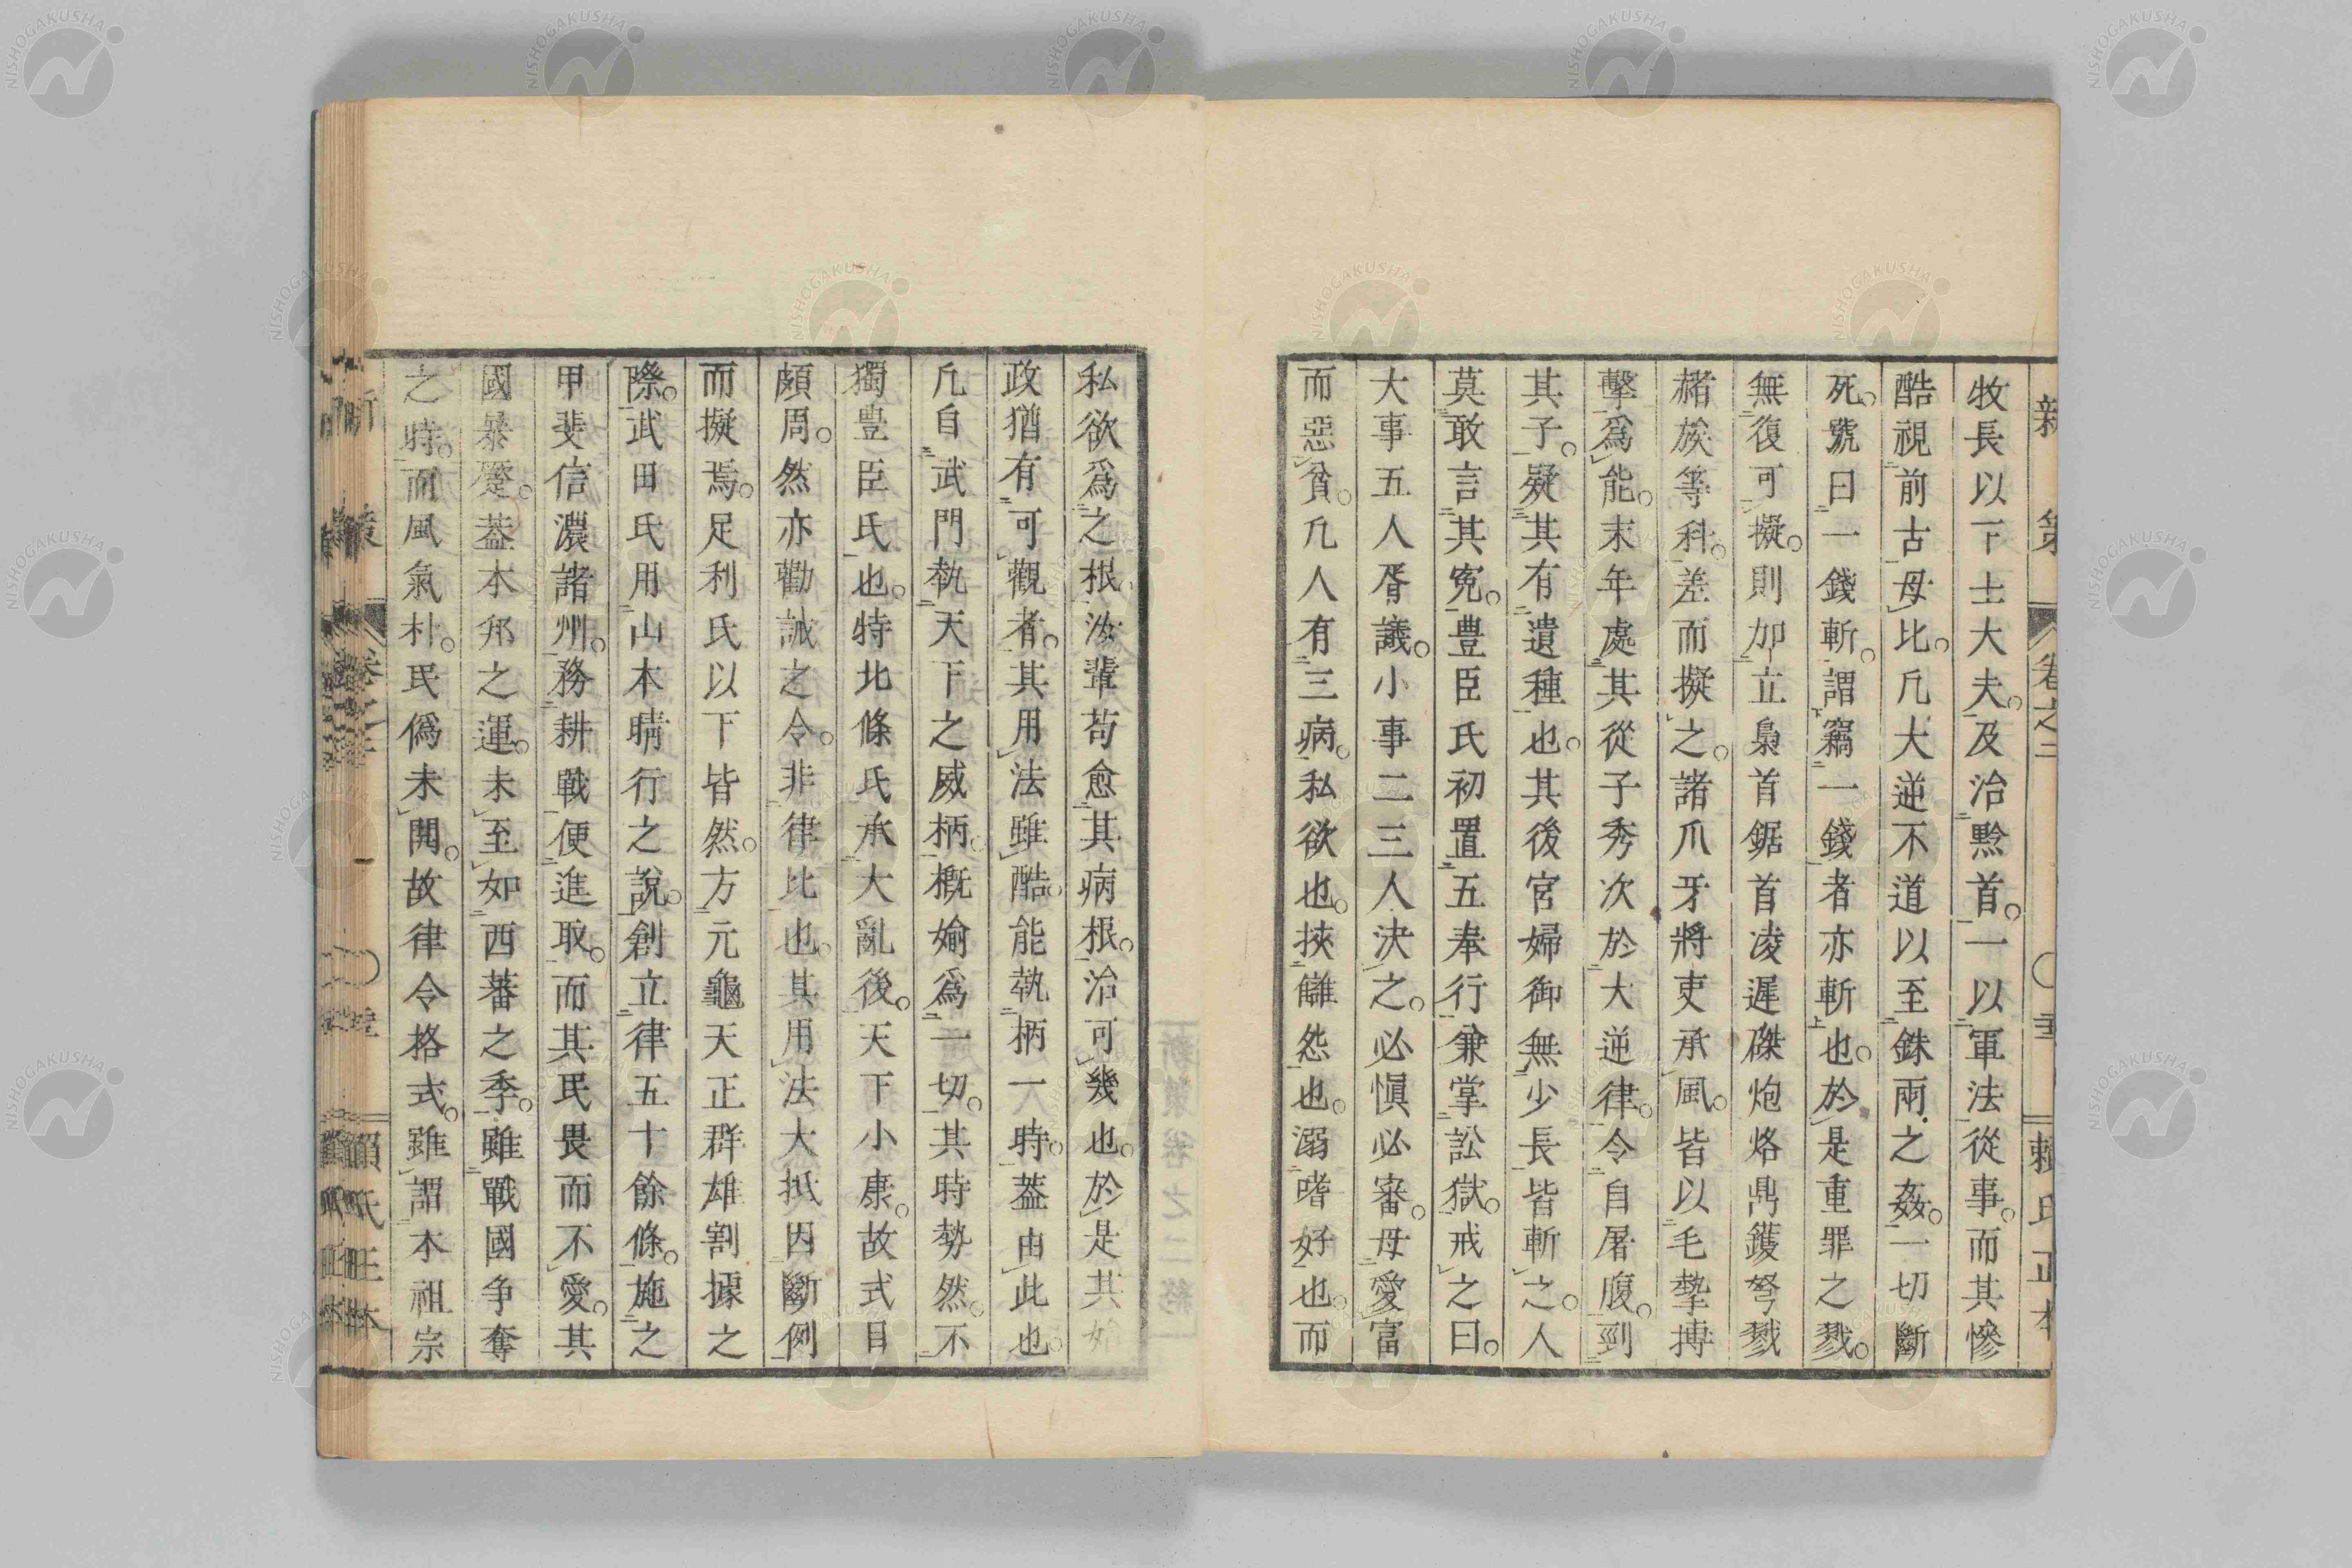 新策 卷之二 ○ 頼氏正本
牧長以下士大夫。及治黔首。一以軍法從事。而其慘
酷視前古母比。凡大逆不道以至銖兩之姦。一切斷
死。號曰一錢斬。謂竊一錢者亦斬也。於是重罪之戮。
無復可擬。則加立梟首鋸首凌遲磔炮烙鼎鑊弩戮
赭族等科。差而擬之。諸爪牙將吏承風。皆以毛摯搏
擊爲能。末年處其從子秀次於大逆律。令自屠腹。到
其子。疑其有遺種也。其後宮婦御無少長皆斬之。人
莫敢言其寃。豊臣氏初置五奉行兼掌訟獄。戒之曰。
大事五人胥議。小事二三人決之。必愼必審。母愛富
而惡貧。凡人有三病。私欲也。挾讎怨也。溺嗜好也。而
私欲爲之根。汝輩苟愈其病根。治可幾也。於是其始
政猶有可觀者。其用法雖酷。能執柄一時。葢由此也。
凡自武門執天下之威柄。概婾爲一切。其時勢然。不
獨豊臣氏也。特北條氏承大亂後。天下小康。故式目
頗周。然亦勸誡之令。非律比也。其用法大抵因斷例
而擬焉。足利氏以下皆然。方元龜天正群雄割據之
際。武田氏用山本晴行之說。創立律五十餘條。施之
甲斐信濃諸州。務耕戰便進取。而其民畏而不愛。其
國暴蹙。葢本邦之運。未至如西蕃之季。雖戰國争奪
之時。而風氣朴。民僞未開。故律令格式。雖謂本祖宗
新策 卷 ○ 頼氏正本
NISHOGAKUSHA